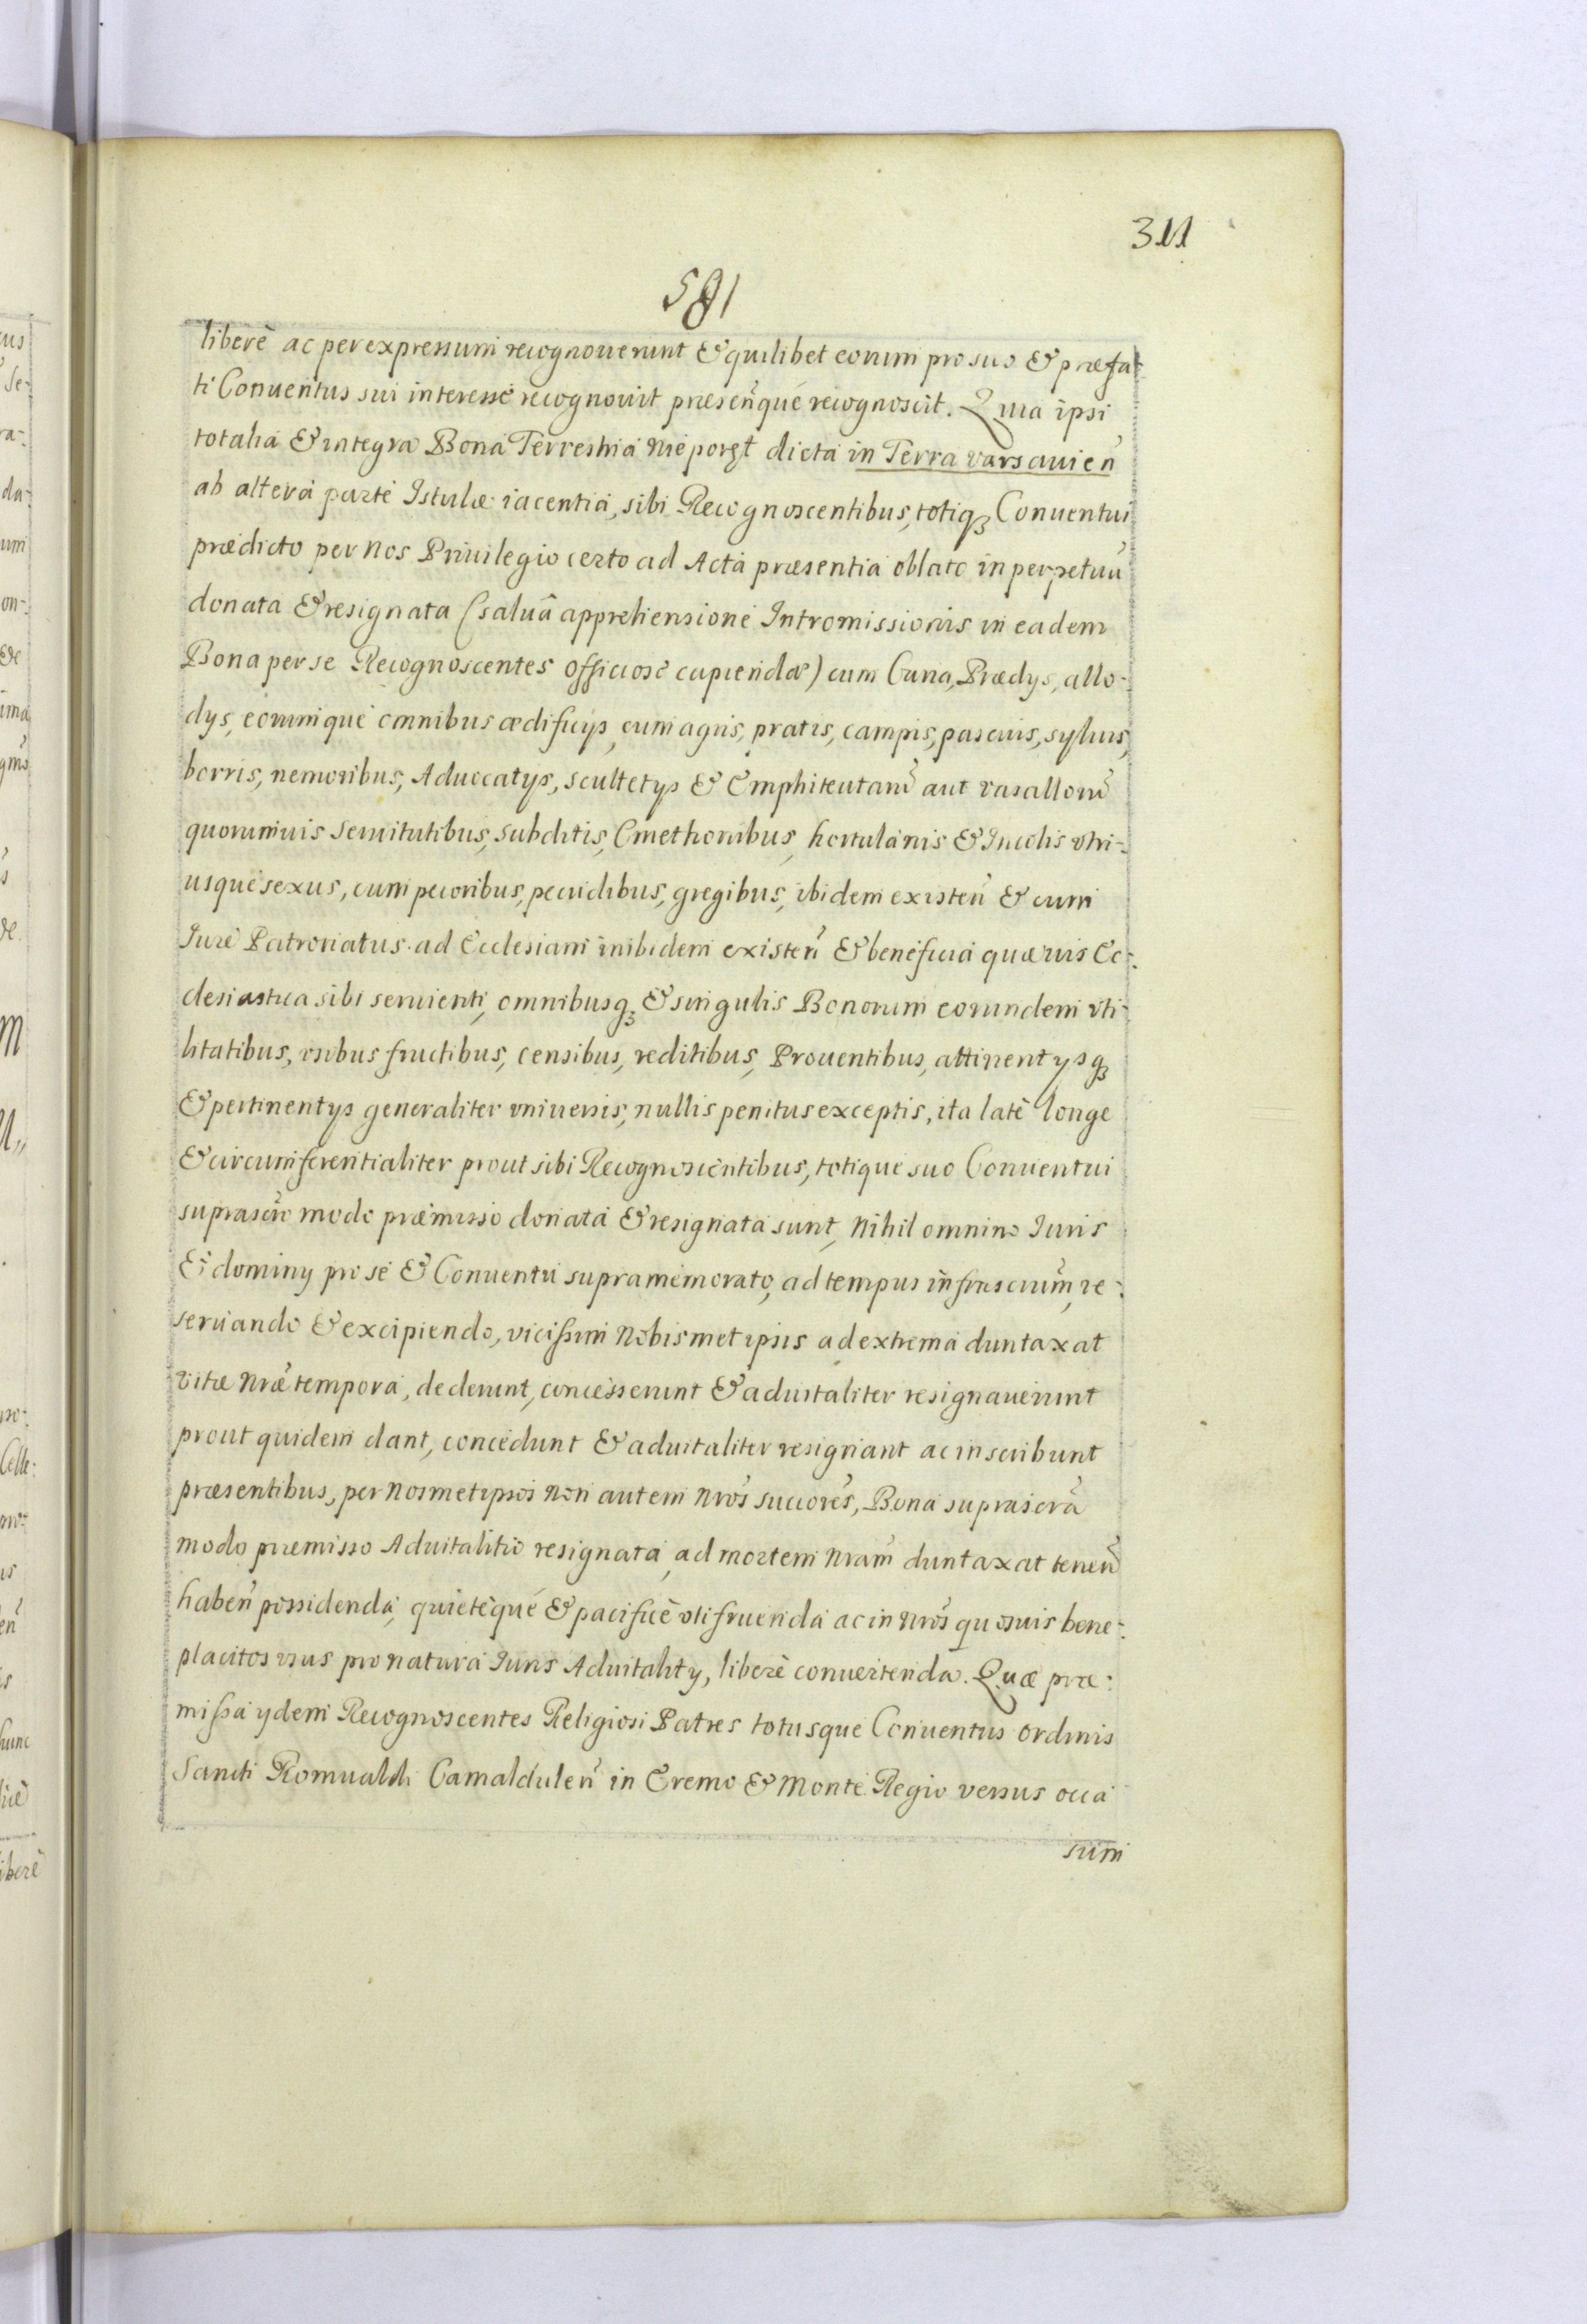 311
581
liberè ac per expressum recognouerunt & quilibet eorum pro suo & præfa-
ti Conuentus sui interesse recognouit præsen̄que recognoscit. Quia ipsi
totalia & integra Bona Terrestria Nieporęt dicta in Terra varsauien̄
ab altera parte Istulæ iacentia, sibi Recognoscentibus, totiqȝ Conuentui
prædicto per Nos Priuilegio certo ad Acta præsentia oblato in perpetuū
donata & resignata (saluâ apprehensione Intromissionis in eadem
Bona per se Recognoscentes officiosè capiendæ) cum Curia, Prædys, allo-
dys, eorumque omnibus ædificys, cum agris, pratis, campis, pascuis, syluis,
borris, nemoribus, Aduocatys, scultetys & Emphiteutarū aut vasallorū
quorumuis seruitutibus, subditis, Cmethonibus, hortulanis & Incolis vtri-
usque sexus, cum pecoribus, pecudibus, gregibus, ibidem existen̄ & cum
Iure Patronatus ad Ecclesiam inibidem existen̄ & beneficia quæuis Ec-
clesiastica sibi seruienti, omnibusqȝ & singulis Bonorum eorundem vti-
litatibus, vsibus fructibus, censibus, reditibus, Prouentibus, attinentysqȝ
& pertinentys generaliter vniuersis, nullis penitus exceptis, ita latè longe
& circumferentialiter prout sibi Recognoscentibus, totique suo Conuentui
suprascr̄o modo præmisso donata & resignata sunt, Nihil omnino Iuris
& dominy pro se & Conuentu supramemorato, ad tempus infrascrium̄, re-
seruando & excipiendo, vicissim Nobismet ipsis ad extrema duntaxat
vitæ Nr̄æ tempora, dederunt, concesserunt & aduitaliter resignauerunt
prout quidem dant, concedunt & aduitaliter resignant ac inscribunt
præsentibus, per Nosmetipsos Non autem Nr̄os succores̄, Bona suprascr̄a
modo præmisso Aduitalitio resignata, ad mortem Nram̄ duntaxat tenen̄
haben̄ possidenda, quietèque & pacificè vtifruenda ac in Nr̄os quosuis bene-
placitos vsus pro natura Iuris Aduitality, liberè conuertenda. Quæ præ-
missa ydem Recognoscentes Religiosi Patres totusque Conuentus ordinis
Sancti Romualdi Camaldulen̄ in Eremo & Monte Regio versus occa
sum